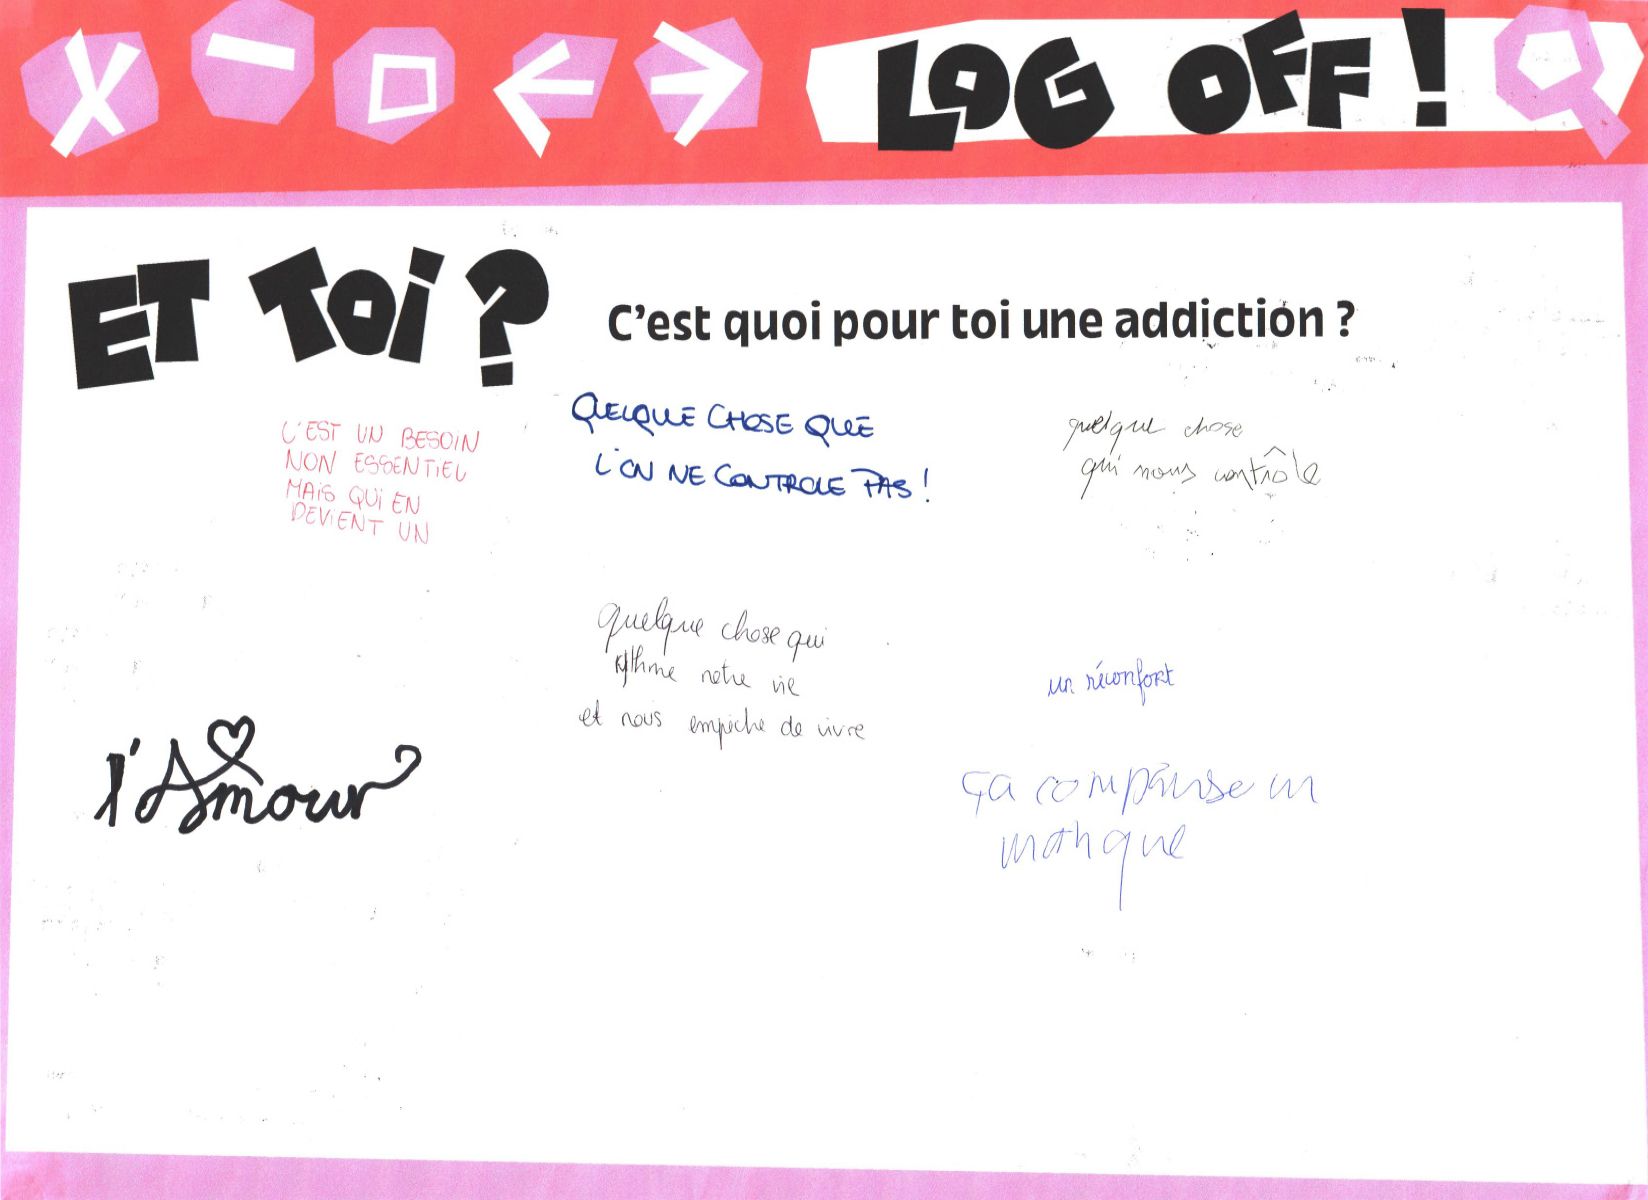 LOG OFF !
ET TOI ?
C'est quoi pour toi une addiction ?
C'EST UN BESOIN
NON ESSENTIEL
MAIS QUI EN
DEVIENT UN
QUELQUE CHOSE QUE
L'ON NE CONTROLE PAS !
quelque chose
qui nous contrôle
quelque chose qui
rythme notre vie
et nous empêche de vivre
un réconfort
l'Amour
ça compense un
manque